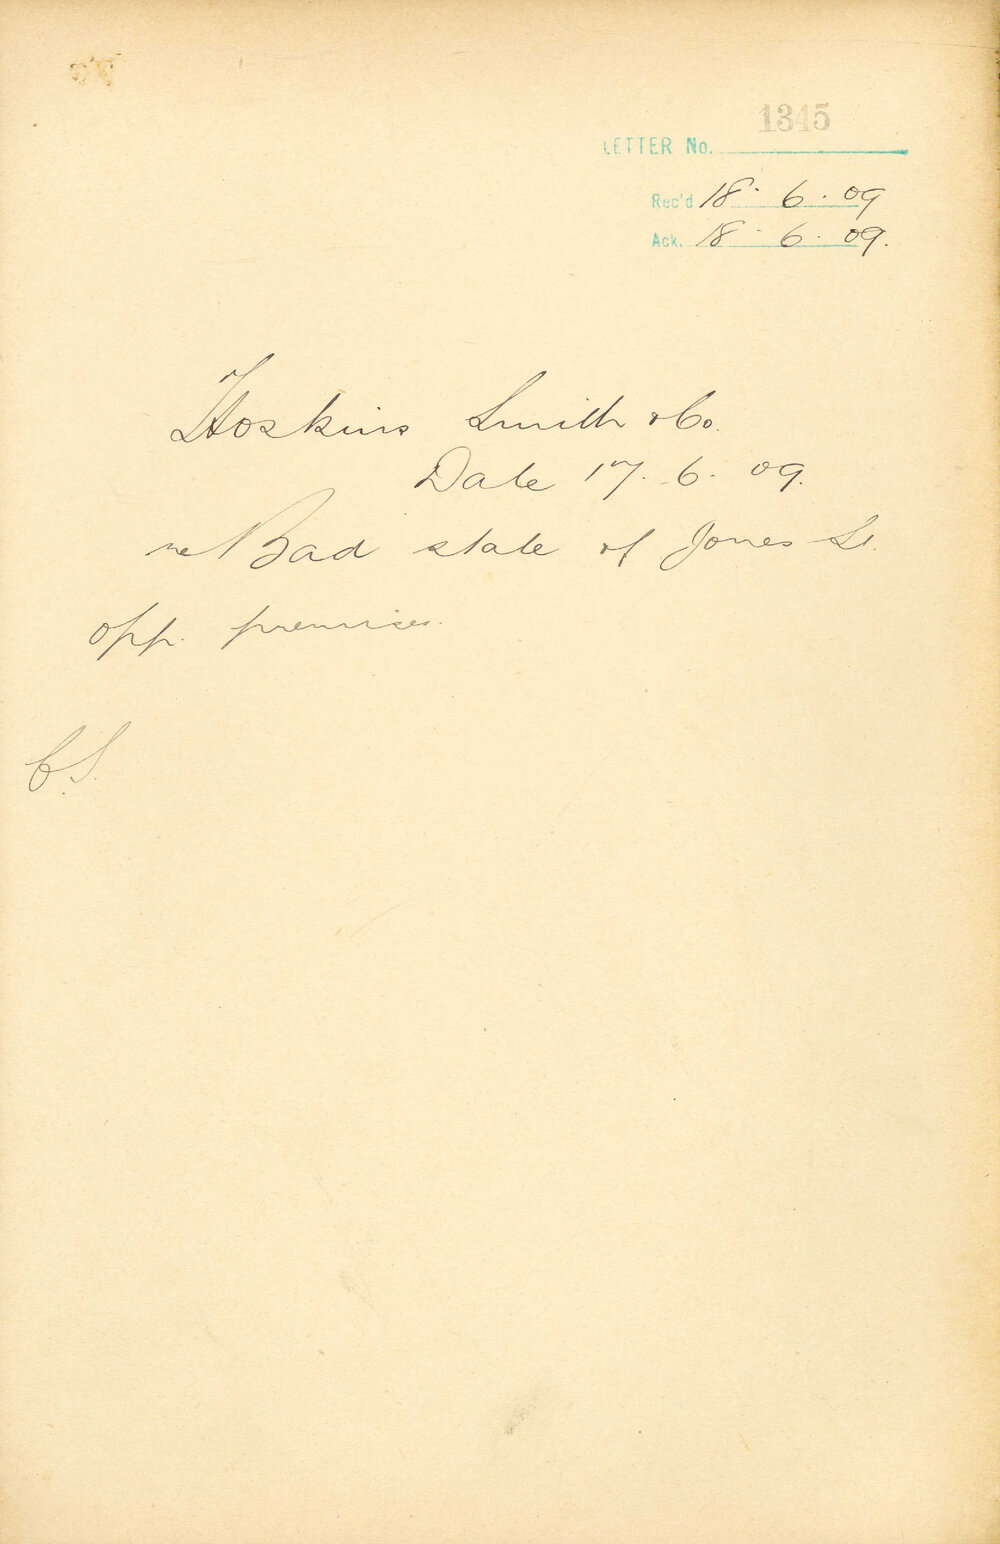 1345
LETTER No.
Rec'd 18. 6. 09
Ack. 18. 6. 09.
Hoskins Smith & Co.
Date 17. 6. 09.
re Bad state of Jones St.
opp. premises.
C.S.